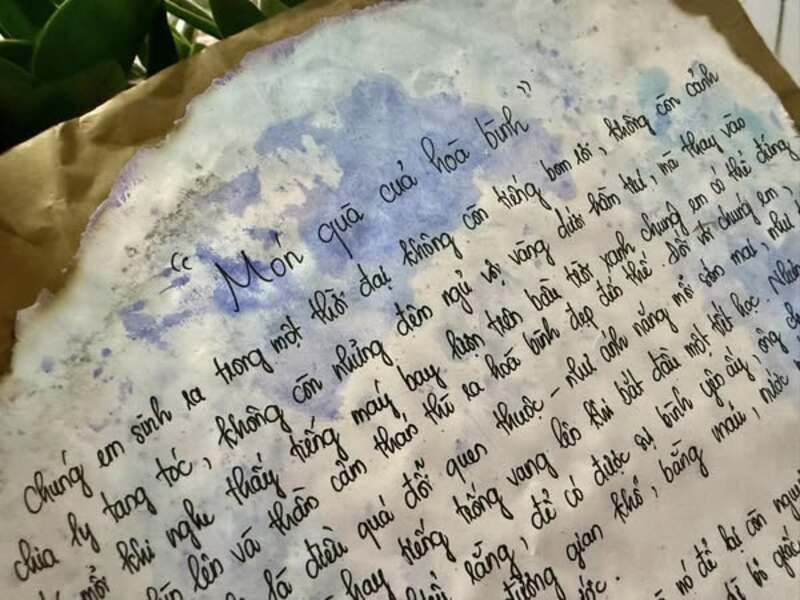 “Món quà của hoà bình”
Chúng em sinh ra trong một thời đại không còn tiếng bom rơi, không còn cảnh
chia ly tang tóc, không còn những đêm ngủ vội vàng dưới hầm trú, mà thay vào
mỗi khi nghe thấy tiếng máy bay lượn trên bầu trời xanh chúng em có thể đứng
lên và thầm cảm thán thì ra hoà bình đẹp đến thế. Đối với chúng em,
là điều quá đỗi quen thuộc – như ánh nắng mỗi sớm mai, như
hay tiếng trống vang lên khi bắt đầu một tiết học.
lắng, để có được sự bình yên ấy, ông
đường gian khổ, bằng máu, nước
nó để lại còn
bỏ